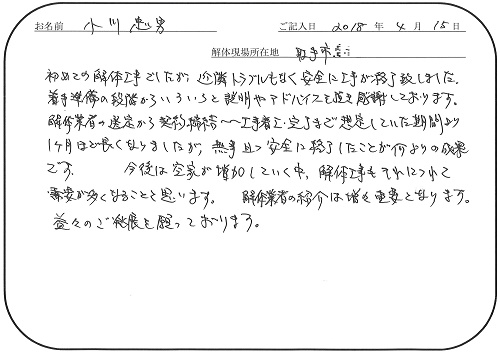 お名前 小川 忠男 ご記入日 2018 年 4 月 15 日
解体現場所在地 取手市
初めての解体工事でしたが、近隣トラブルもなく安全に工事が終了致しました。
着手準備の段階からいろいろと説明やアドバイスを頂き感謝しております。
解体業者の選定から契約締結〜工事着工・完了まで想定していた期間より
1ヶ月ほど長くなりましたが、無事且つ安全に終了したことが何よりの成果
です。 今後は空家が増加していく中、解体工事もそれにつれて
需要が多くなることと思います。 解体業者の紹介は増々重要となります。
益々のご発展を願っております。